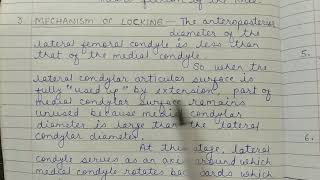 3. MECHANISM OF LOCKING — The anteroposterior
diameter of the
lateral femoral condyle is less than
that of the medial condyle
So when the
lateral condylar articular surface is
fully "used up" by extension, part of
medial condylar surface remains
unused because medial condylar
diameter is large than the lateral
condylar diameter.
At this stage, lateral
condyle serves as an axis around which
medial condyle rotates backwards which
5.
6.